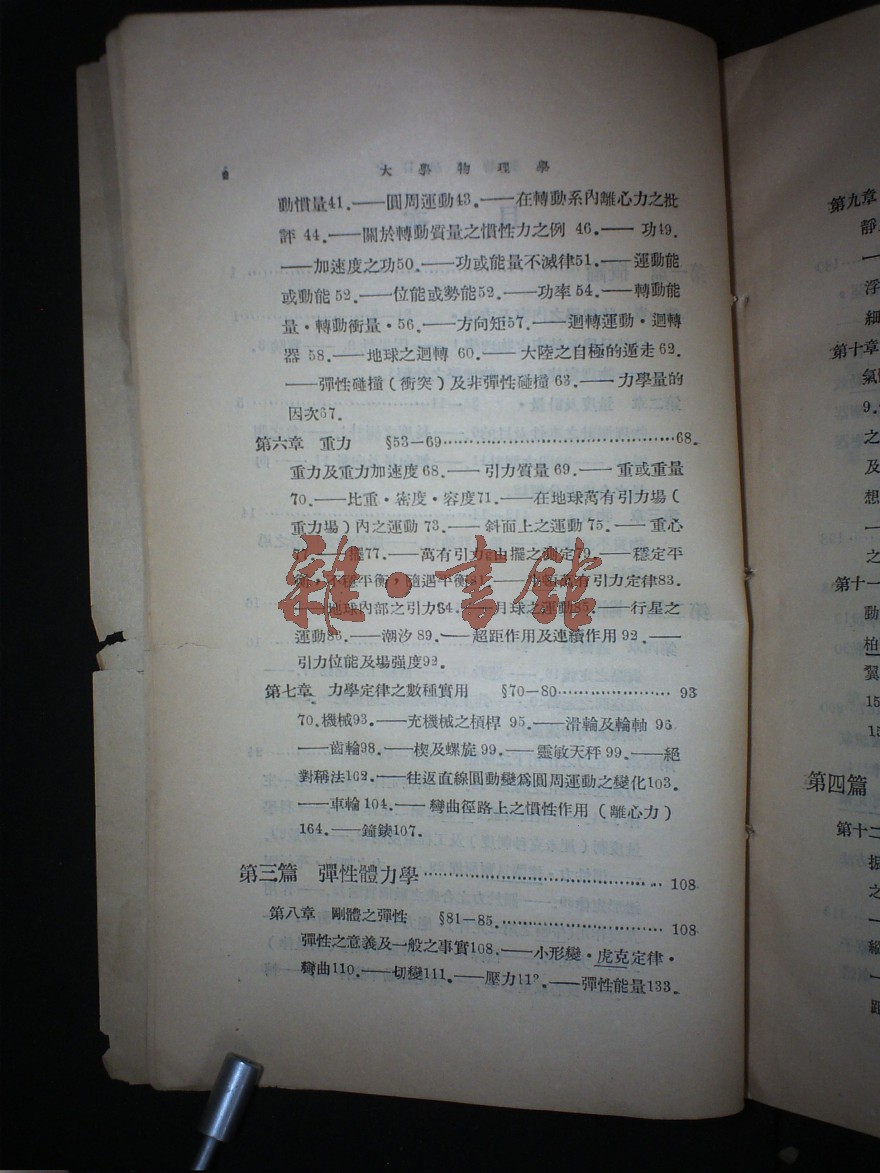 2
大學物理學
動慣量41.——圓周運動43.——在轉動系內離心力之批
評 44.——關於轉動質量之慣性力之例 46.——功49.
——加速度之功50.——功或能量不滅律51.——運動能
或動能 52.——位能或勢能52.——功率 54.——轉動能
量・轉動衝量・56.——方向矩57.——迴轉運動・迴轉
器 58.——地球之迴轉 60.——大陸之自極的遁走 62.
——彈性碰撞（衝突）及非彈性碰撞 63.——力學量的
因次67.
第六章 重力 §53—69……………………………68.
重力及重力加速度 68.——引力質量 69.——重或重量
70.——比重・密度・容度71.——在地球萬有引力場（
重力場）內之運動 73.——斜面上之運動 75.——重心
77.——擺77.——萬有引力由擺之測定79.——穩定平
衡，不穩平衡，隨遇平衡81.——萬有引力定律83.
——地球內部之引力84.——月球之運動85.——行星之
運動86.——潮汐 89.——超距作用及連續作用 92.——
引力位能及場強度92.
第七章 力學定律之數種實用 §70—80……………… 93
70.機械93.——充機械之槓桿 95.——滑輪及輪軸 96
——齒輪98.——楔及螺旋 99.——靈敏天秤 99.——絕
對稱法102.——往返直線圓動變爲圓周運動之變化103.
——車輪 104.——彎曲徑路上之慣性作用（離心力）
164.——鐘錶107.
第三篇 彈性體力學…………………………… 108
第八章 剛體之彈性 §81—85.……………………… 108
彈性之意義及一般之事實108.——小形變・虎克定律・
彎曲110.——切變111.——壓力112.——彈性能量133.
雜・書館
第九章
靜
浮
細
第十章
氣
9.
之
及
想
之
第十一
動
柏
翼
15
15
第四篇
第十二
之